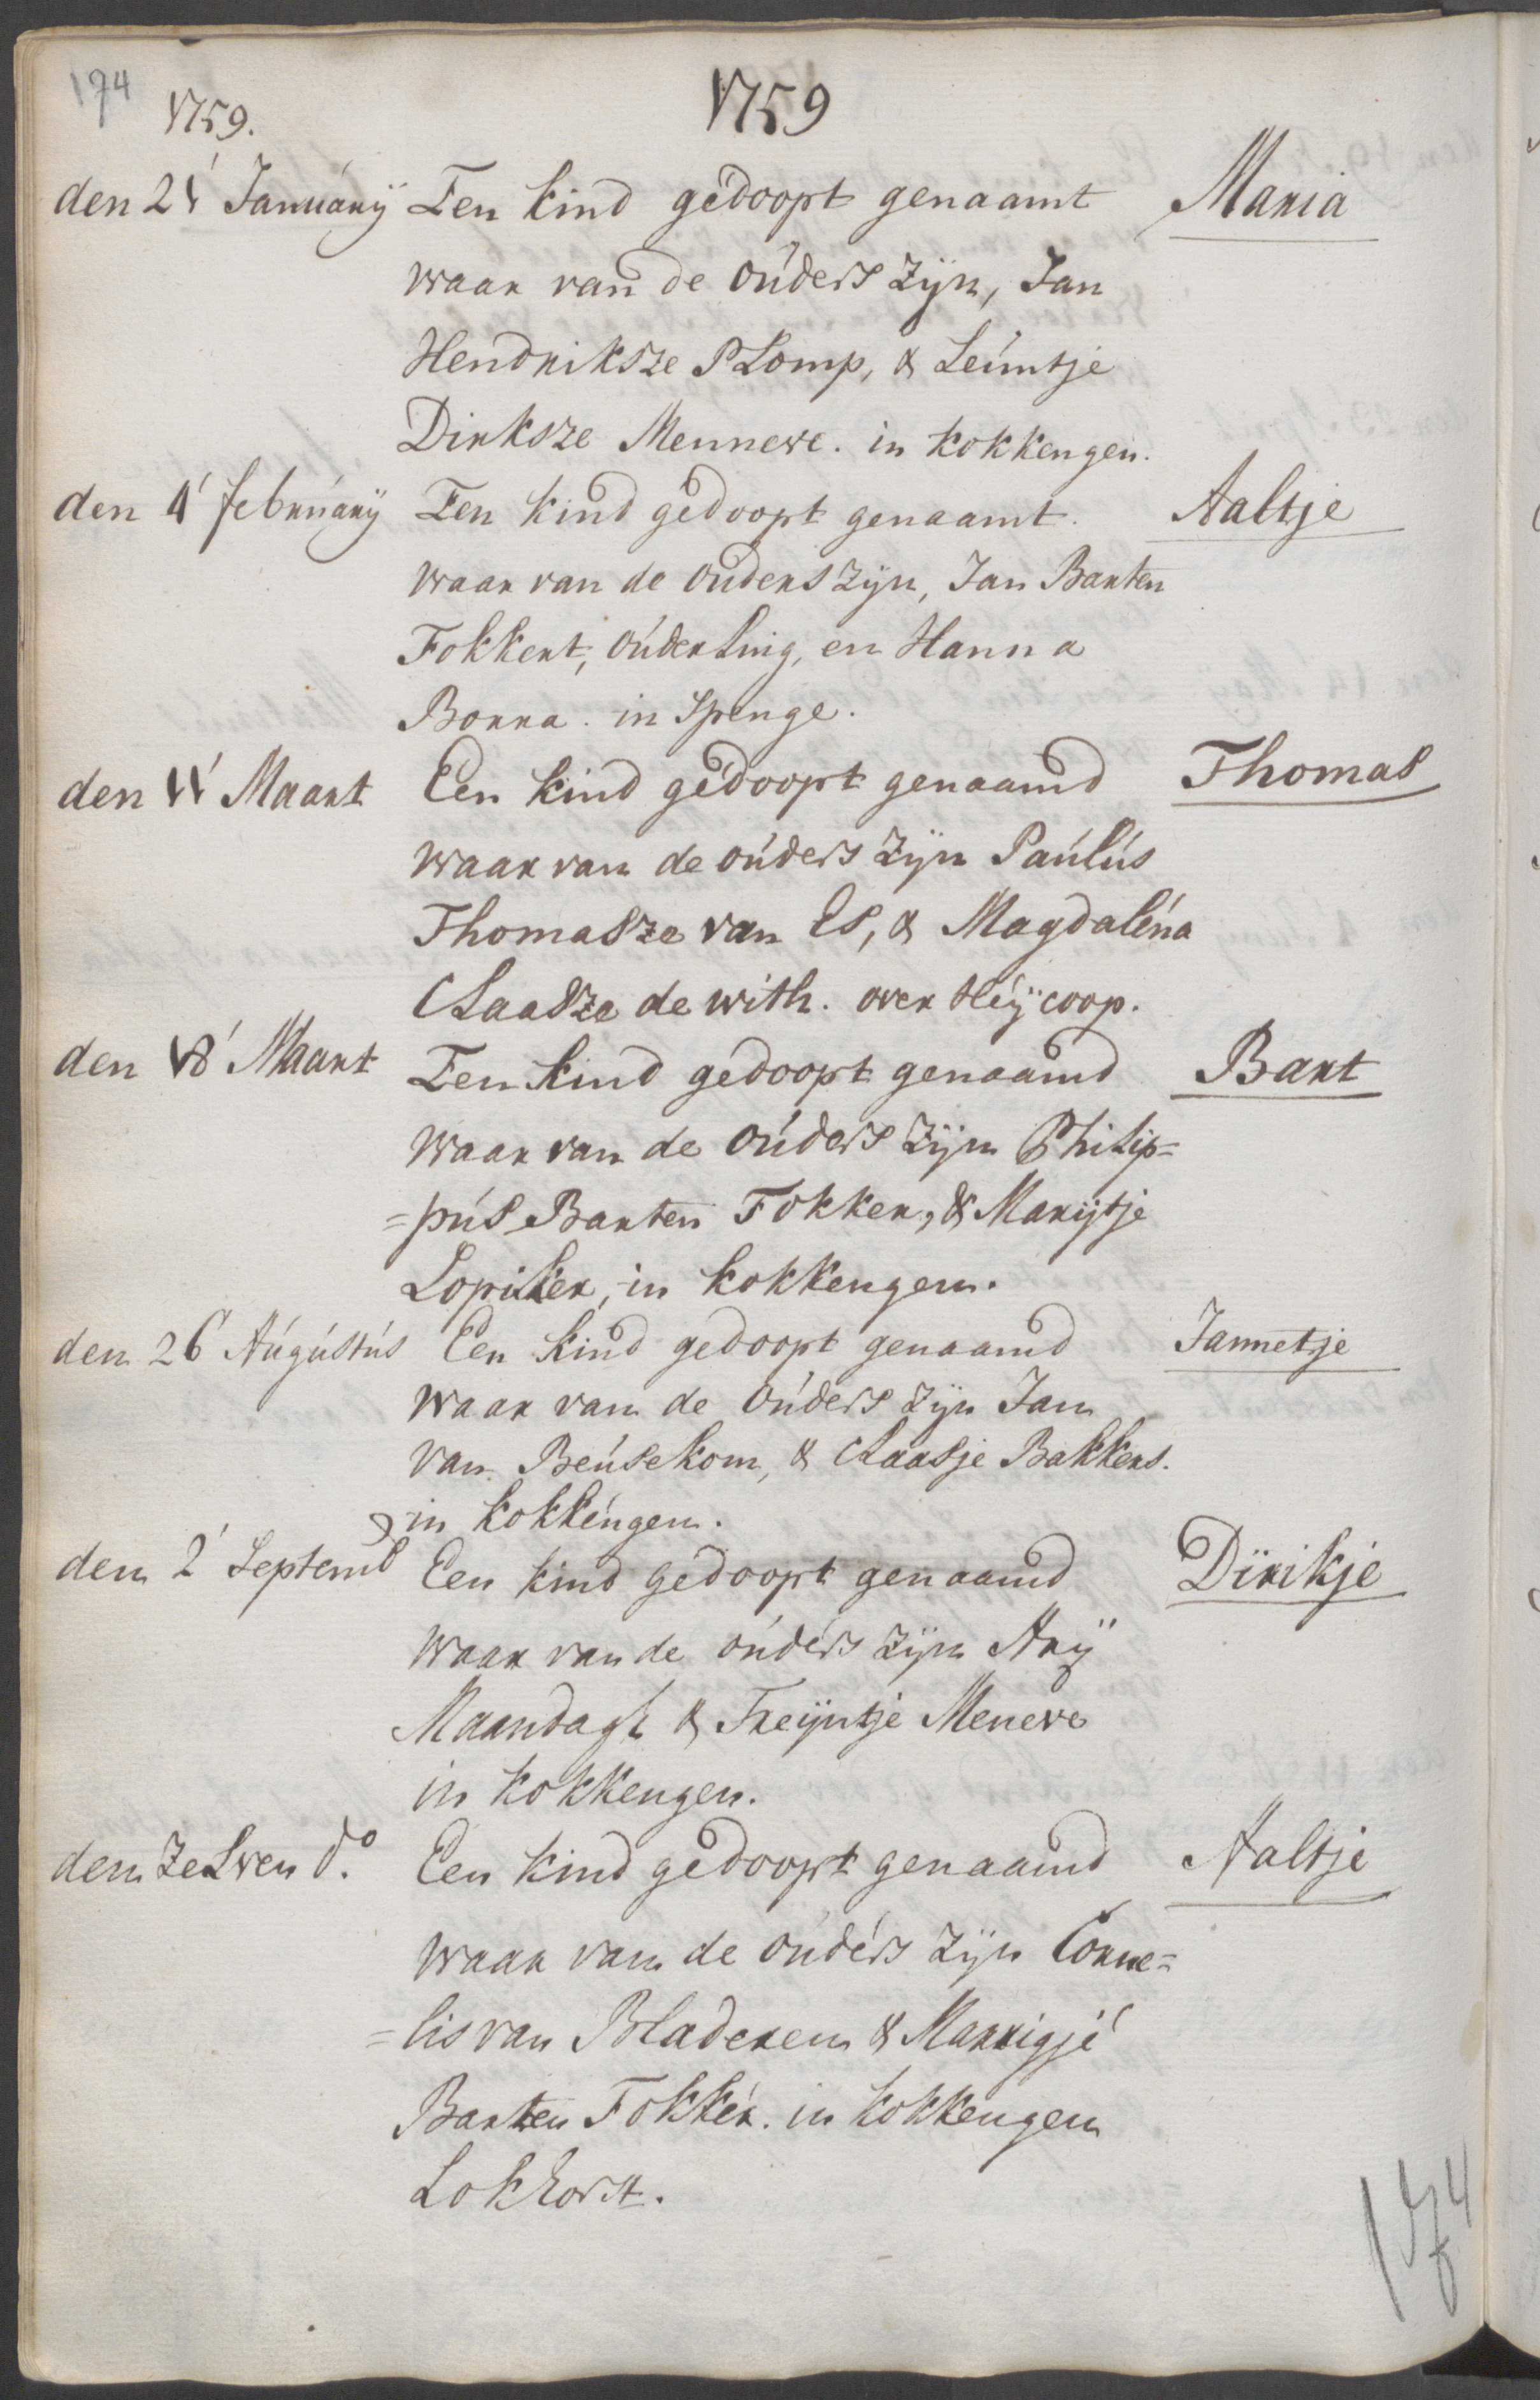 174
1759.
1759
den 21 Januarÿ Een kind gedoopt genaamt Maria
waar van de ouders zijn, Jan
Hendriksze PLomp, & Leuntje
Dirksze Menneve. in kokkengen.
den 4 februarÿ Een kind gedoopt genaamt. Aaltje
waar van de ouders zijn, Jan Barten
Fokkert, ouderling, en Hanna
Borra. in Spenge.
den 11 Maart Een kind gedoopt genaamd Thomas
waar van de ouders zijn Paulus
Thomasze van Es, & Magdalena
Claasze de with. over Heÿcoop.
den 18 Maart Een kind gedoopt genaamd Bart
waar van de ouders zijn Philip=
=pus Barten Fokker, & Marijtje
Lopiker, in kokkengen.
den 26 Augustus Een kind gedoopt genaamd Jannetje
waar van de ouders zijn Jan
van Beusekom, & Claasje Bakkers.
in kokkengen.
den 2 Septemb Een kind gedoopt genaamd Dirikje
waar van de ouders zijn Arÿ
Maandagh & Treijntje Meneve
in kokkengen.
den zelven do. Een kind gedoopt genaamd Aaltje
waar van de ouders zijn Corne=
=lis van Bladeren & Marrigje
Barten Fokker. in kokkengen
Lokhorst.
174